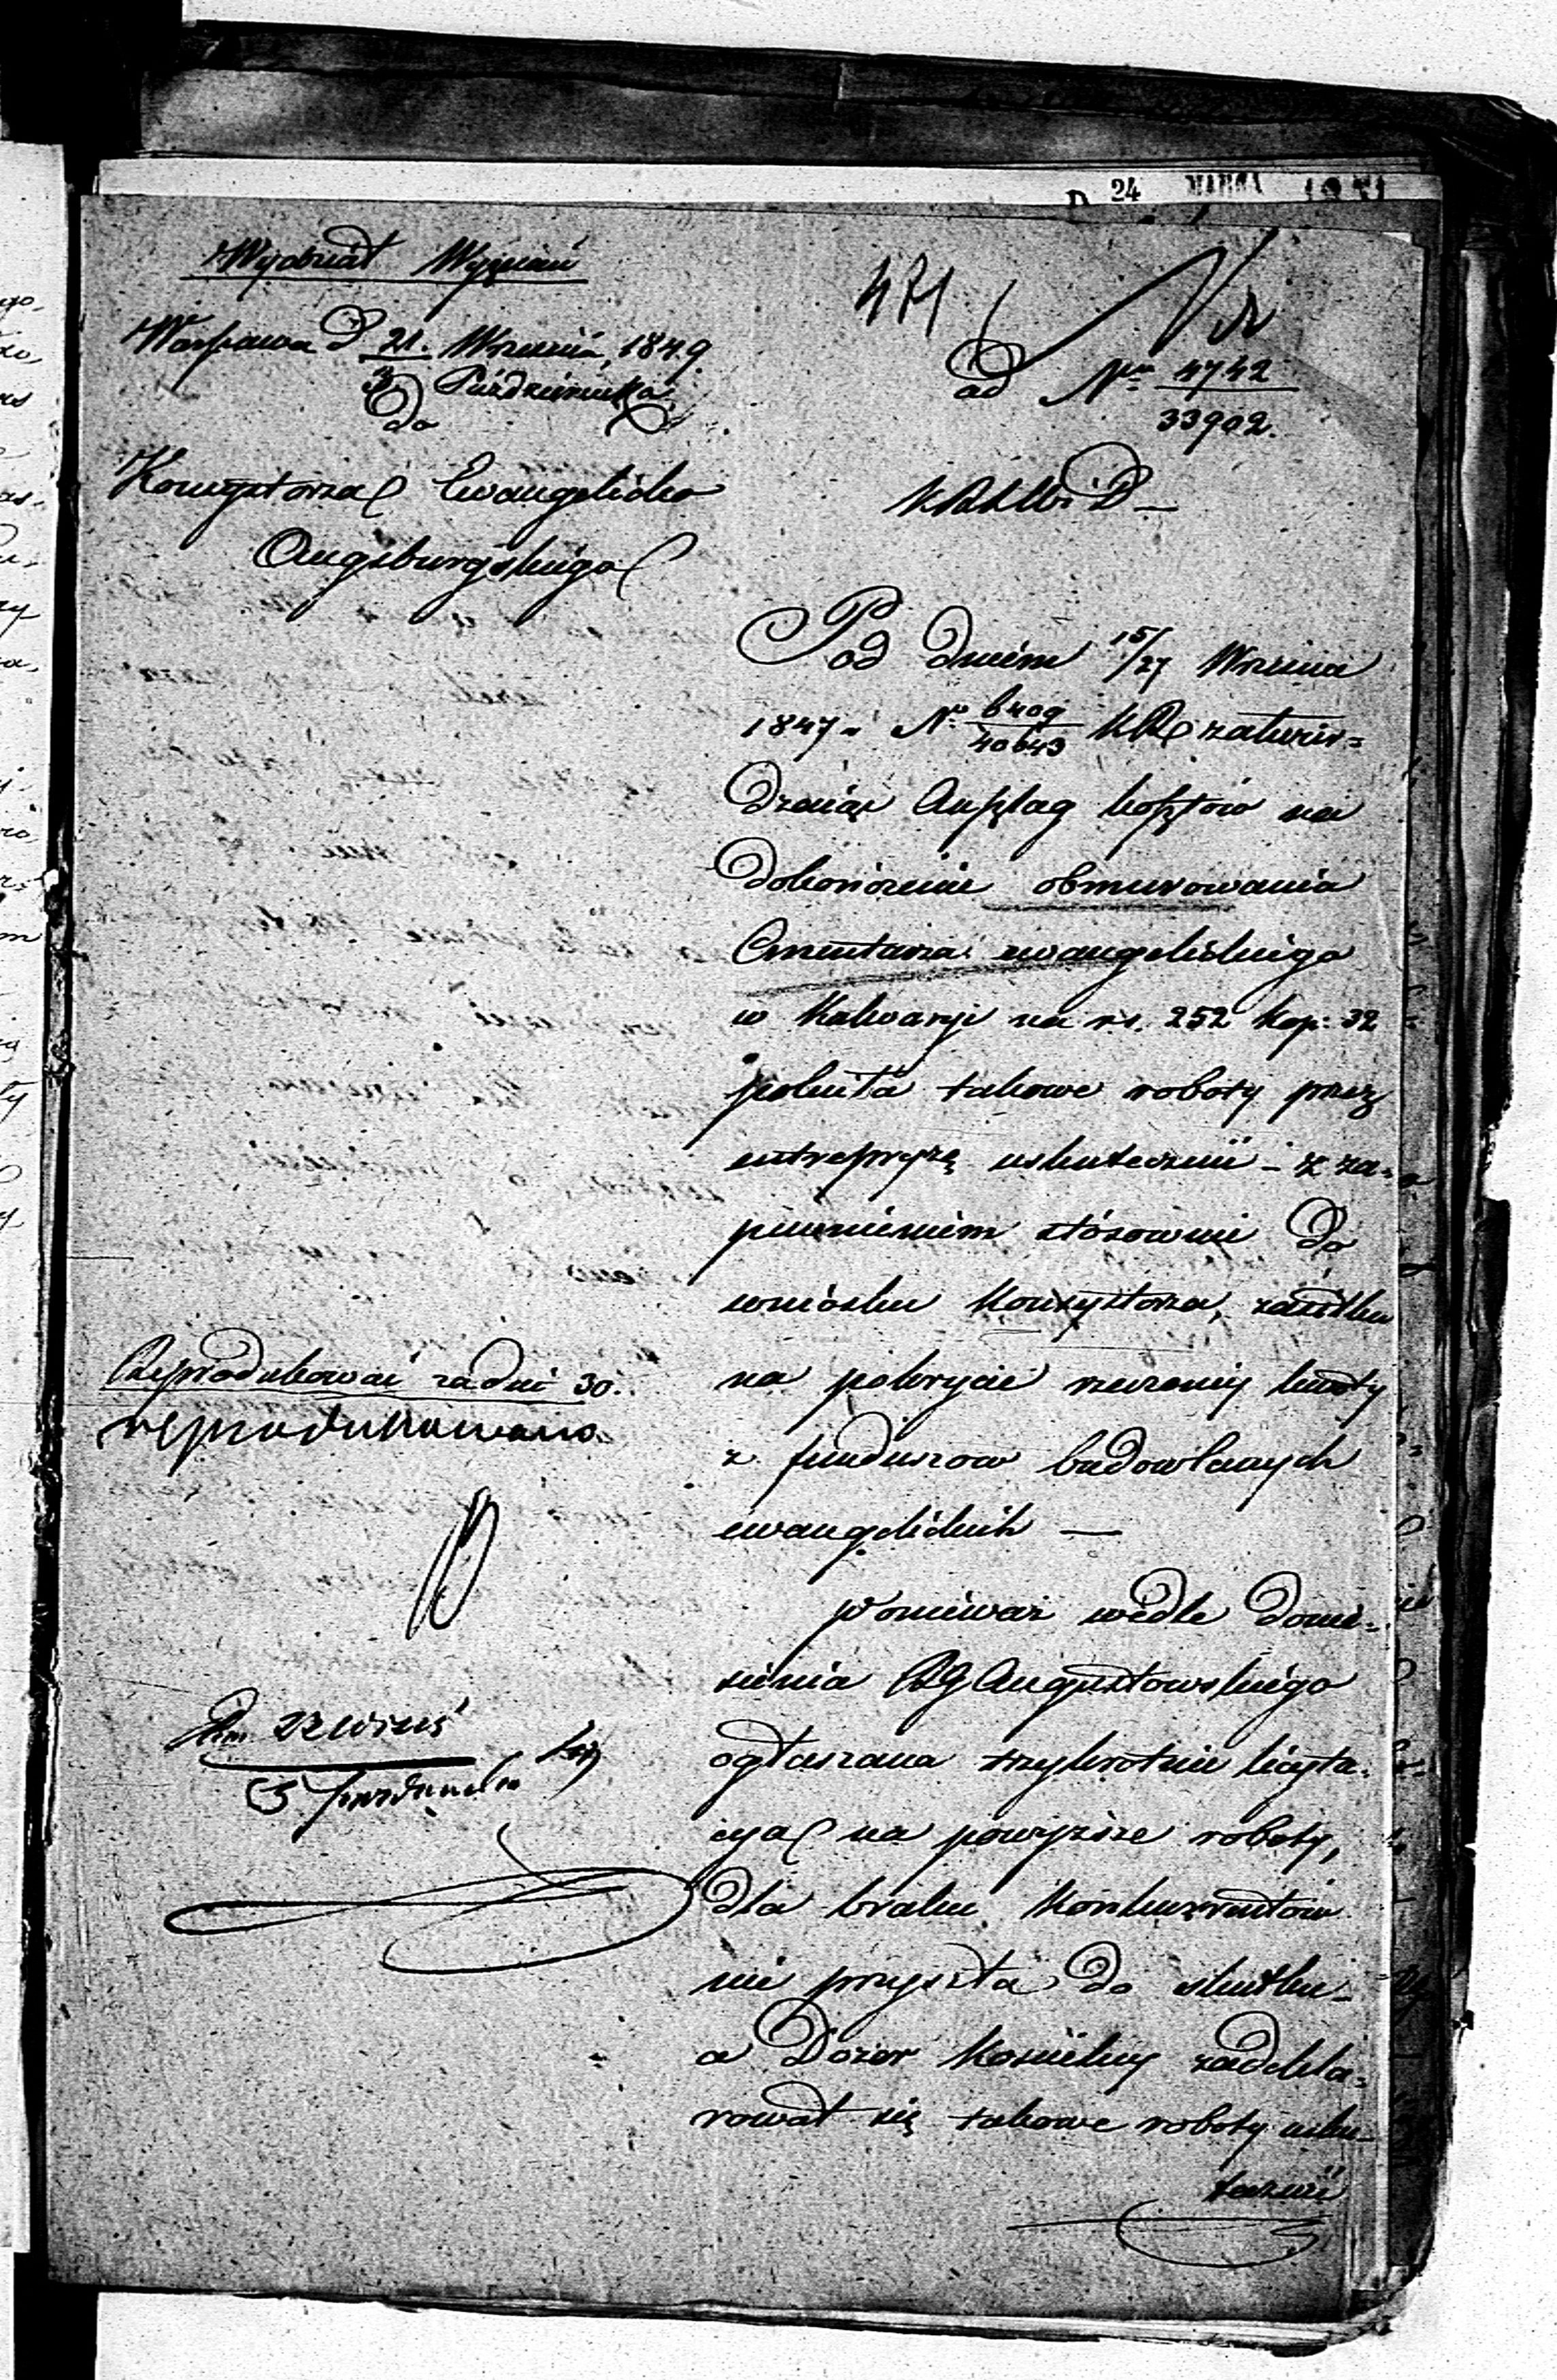 24 MARCA
Wydział Wyznań
471
Warszawa D 21. Września 1849
3 Października
ad Nr 4742
33902.
do
Konsystorza Ewangelicko
Augsburgskiego
Pod dniem 15/27 Września
1847 r. Nr 6409/40643 KR zatwier=
dzając Anszlag kosztów na
dokończenie obmurowania
Cmentarza ewangelickiego
w Kalwaryi na rs. 252 kop: 32
poleciła takowe roboty przez
entrepryzę uskutecznić – z za=
pewnieniem stósownie do
wniosku Konsystorza, zasiłku
na pokrycie rzeczonéy kwoty
z funduszow budowlanych
ewangelickich —
Ponieważ wedle donie=
sienia RG Augustowskiego
ogłaszana trzykrotnie licyta=
cya na powyższe roboty,
dla braku Konkurrentów
nie przyszła do skutku –
a Dozor Kościelny zadekla=
rował się takowe roboty usku=
tecznić
Reprodukować za dni 30.
reprodukowano